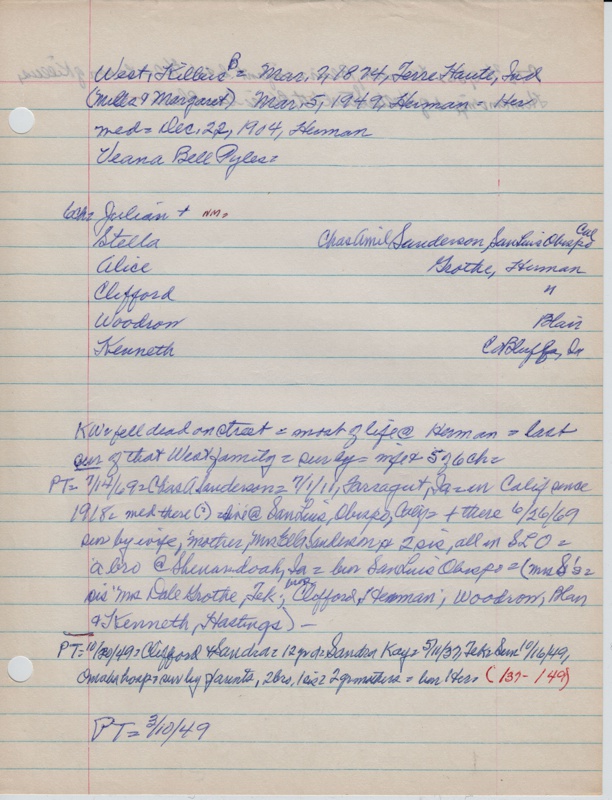 West, Kilbers B = Mar, 7, 1874, Terre Haute, Ind
(Miles & Margaret) Mar, 5, 1949, Herman = Her
med = Dec. 22, 1904, Herman
Veana Bell Pyles =
6ch = Julian + NM.
Stella Chas Amil Sanderson, San Luis Obispo Cal
Alice Grothe, Herman
Clifford "
Woodrow Blair
Kenneth Co Bluffs, Ia
KW = fell dead on street = most of life @ Herman = last
sur of that West family = sur by = wife + 5 of 6 ch =
PT = 7/17/69 = Chas A Sanderson = 7/1/11, Farragut, Ia = in Calif since
1918 = med there (?) = @ San Luis, Obispo, Caly = + there 6/26/69
sur by wife, mother, Mrs Sanderson, 2 sis, all in SLO =
a bro @ Shenandoah, Ia = bur San Luis Obispo = (Mrs S's =
sis Mrs Dale Grothe, Tek; bros Clifford, Herman; Woodrow, Blair
& Kenneth, Hastings) -
PT = 10/20/49 = Clifford & Sandra = 12 yr = Sandra Kay = 5/10/37, Tek = Sun 10/16/49,
Omaha hosp = sur by parents, 2 bro, 1 sis = 2 grmothers = bur Her = (137-149)
PT = 3/10/49